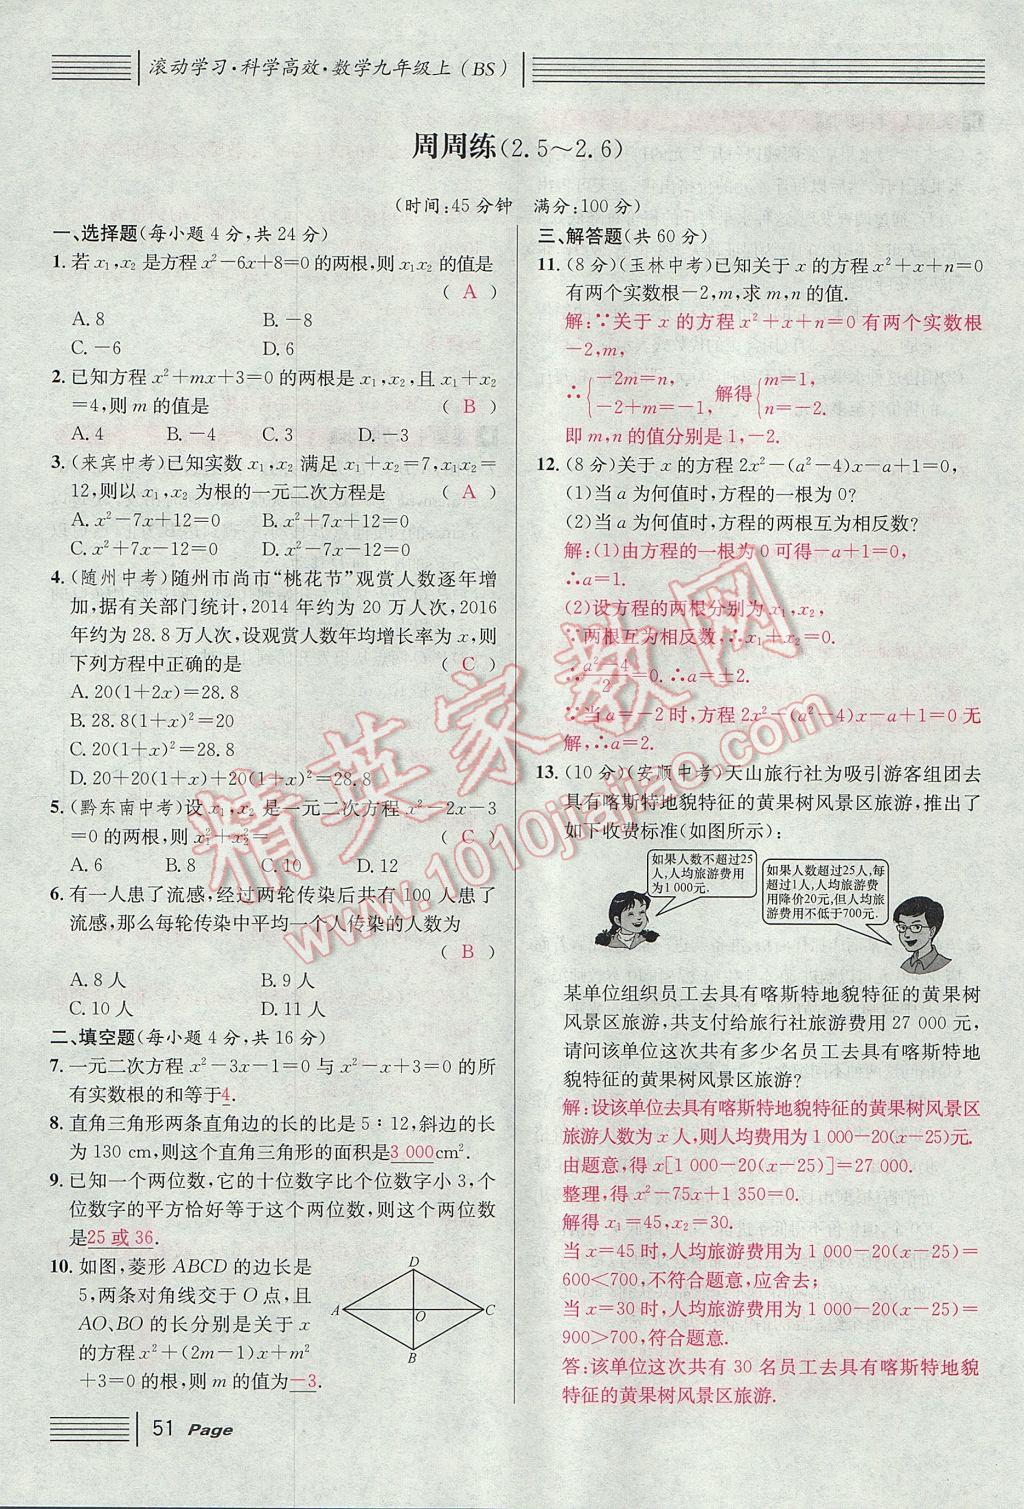 滚动学习·科学高效·数学九年级上(BS)
周周练(2.5～2.6)
(时间:45分钟 满分:100分)
一、选择题(每小题4分,共24分)
1.若x₁,x₂是方程x²-6x+8=0的两根,则x₁x₂的值是
( A )
A.8 B.-8
C.-6 D.6
2.已知方程x²+mx+3=0的两根是x₁,x₂,且x₁+x₂
=4,则m的值是 ( B )
A.4 B.-4 C.3 D.-3
3.(来宾中考)已知实数x₁,x₂满足x₁+x₂=7,x₁x₂=
12,则以x₁,x₂为根的一元二次方程是 ( A )
A.x²-7x+12=0 B.x²+7x+12=0
C.x²+7x-12=0 D.x²-7x-12=0
4.(随州中考)随州市尚市“桃花节”观赏人数逐年增
加,据有关部门统计,2014年约为20万人次,2016
年约为28.8万人次,设观赏人数年均增长率为x,则
下列方程中正确的是 ( C )
A.20(1+2x)=28.8
B.28.8(1+x)²=20
C.20(1+x)²=28.8
D.20+20(1+x)+20(1+x)²=28.8
5.(黔东南中考)设x₁,x₂是一元二次方程x²-2x-3
=0的两根,则x₁²+x₂²= ( C )
A.6 B.8 C.10 D.12
6.有一人患了流感,经过两轮传染后共有100人患了
流感,那么每轮传染中平均一个人传染的人数为
( B )
A.8人 B.9人
C.10人 D.11人
二、填空题(每小题4分,共16分)
7.一元二次方程x²-3x-1=0与x²-x+3=0的所
有实数根的和等于4.
8.直角三角形两条直角边的长的比是5∶12,斜边的长
为130 cm,则这个直角三角形的面积是3 000cm².
9.已知一个两位数,它的十位数字比个位数字小3,个
位数字的平方恰好等于这个两位数,则这个两位数
是25或36.
10.如图,菱形ABCD的边长是
5,两条对角线交于O点,且
AO、BO的长分别是关于x
的方程x²+(2m-1)x+m²
+3=0的根,则m的值为-3.
D
A
O
C
B
51 Page
三、解答题(共60分)
11.(8分)(玉林中考)已知关于x的方程x²+x+n=0
有两个实数根-2,m,求m,n的值.
解:∵关于x的方程x²+x+n=0有两个实数根
-2,m,
∴{-2m=n, -2+m=-1, 解得{m=1, n=-2.
即m,n的值分别是1,-2.
12.(8分)关于x的方程2x²-(a²-4)x-a+1=0,
(1)当a为何值时,方程的一根为0?
(2)当a为何值时,方程的两根互为相反数?
解:(1)由方程的一根为0可得-a+1=0,
∴a=1.
(2)设方程的两根分别为x₁,x₂,
∵两根互为相反数,∴x₁+x₂=0.
∴(a²-4)/2=0.∴a=±2.
∵当a=-2时,方程2x²-(a²-4)x-a+1=0无
解,∴a=2.
13.(10分)(安顺中考)天山旅行社为吸引游客组团去
具有喀斯特地貌特征的黄果树风景区旅游,推出了
如下收费标准(如图所示):
如果人数不超过25
人,人均旅游费用
为1 000元.
如果人数超过25人,每
超过1人,人均旅游费
用降价20元,但人均旅
游费用不低于700元.
某单位组织员工去具有喀斯特地貌特征的黄果树
风景区旅游,共支付给旅行社旅游费用27 000元,
请问该单位这次共有多少名员工去具有喀斯特地
貌特征的黄果树风景区旅游?
解:设该单位去具有喀斯特地貌特征的黄果树风景区
旅游人数为x人,则人均费用为1 000-20(x-25)元.
由题意,得x[1 000-20(x-25)]=27 000.
整理,得x²-75x+1 350=0.
解得x₁=45,x₂=30.
当x=45时,人均旅游费用为1 000-20(x-25)=
600<700,不符合题意,应舍去;
当x=30时,人均旅游费用为1 000-20(x-25)=
900>700,符合题意.
答:该单位这次共有30名员工去具有喀斯特地貌
特征的黄果树风景区旅游.
精英家教网
www.1010jiajiao.com